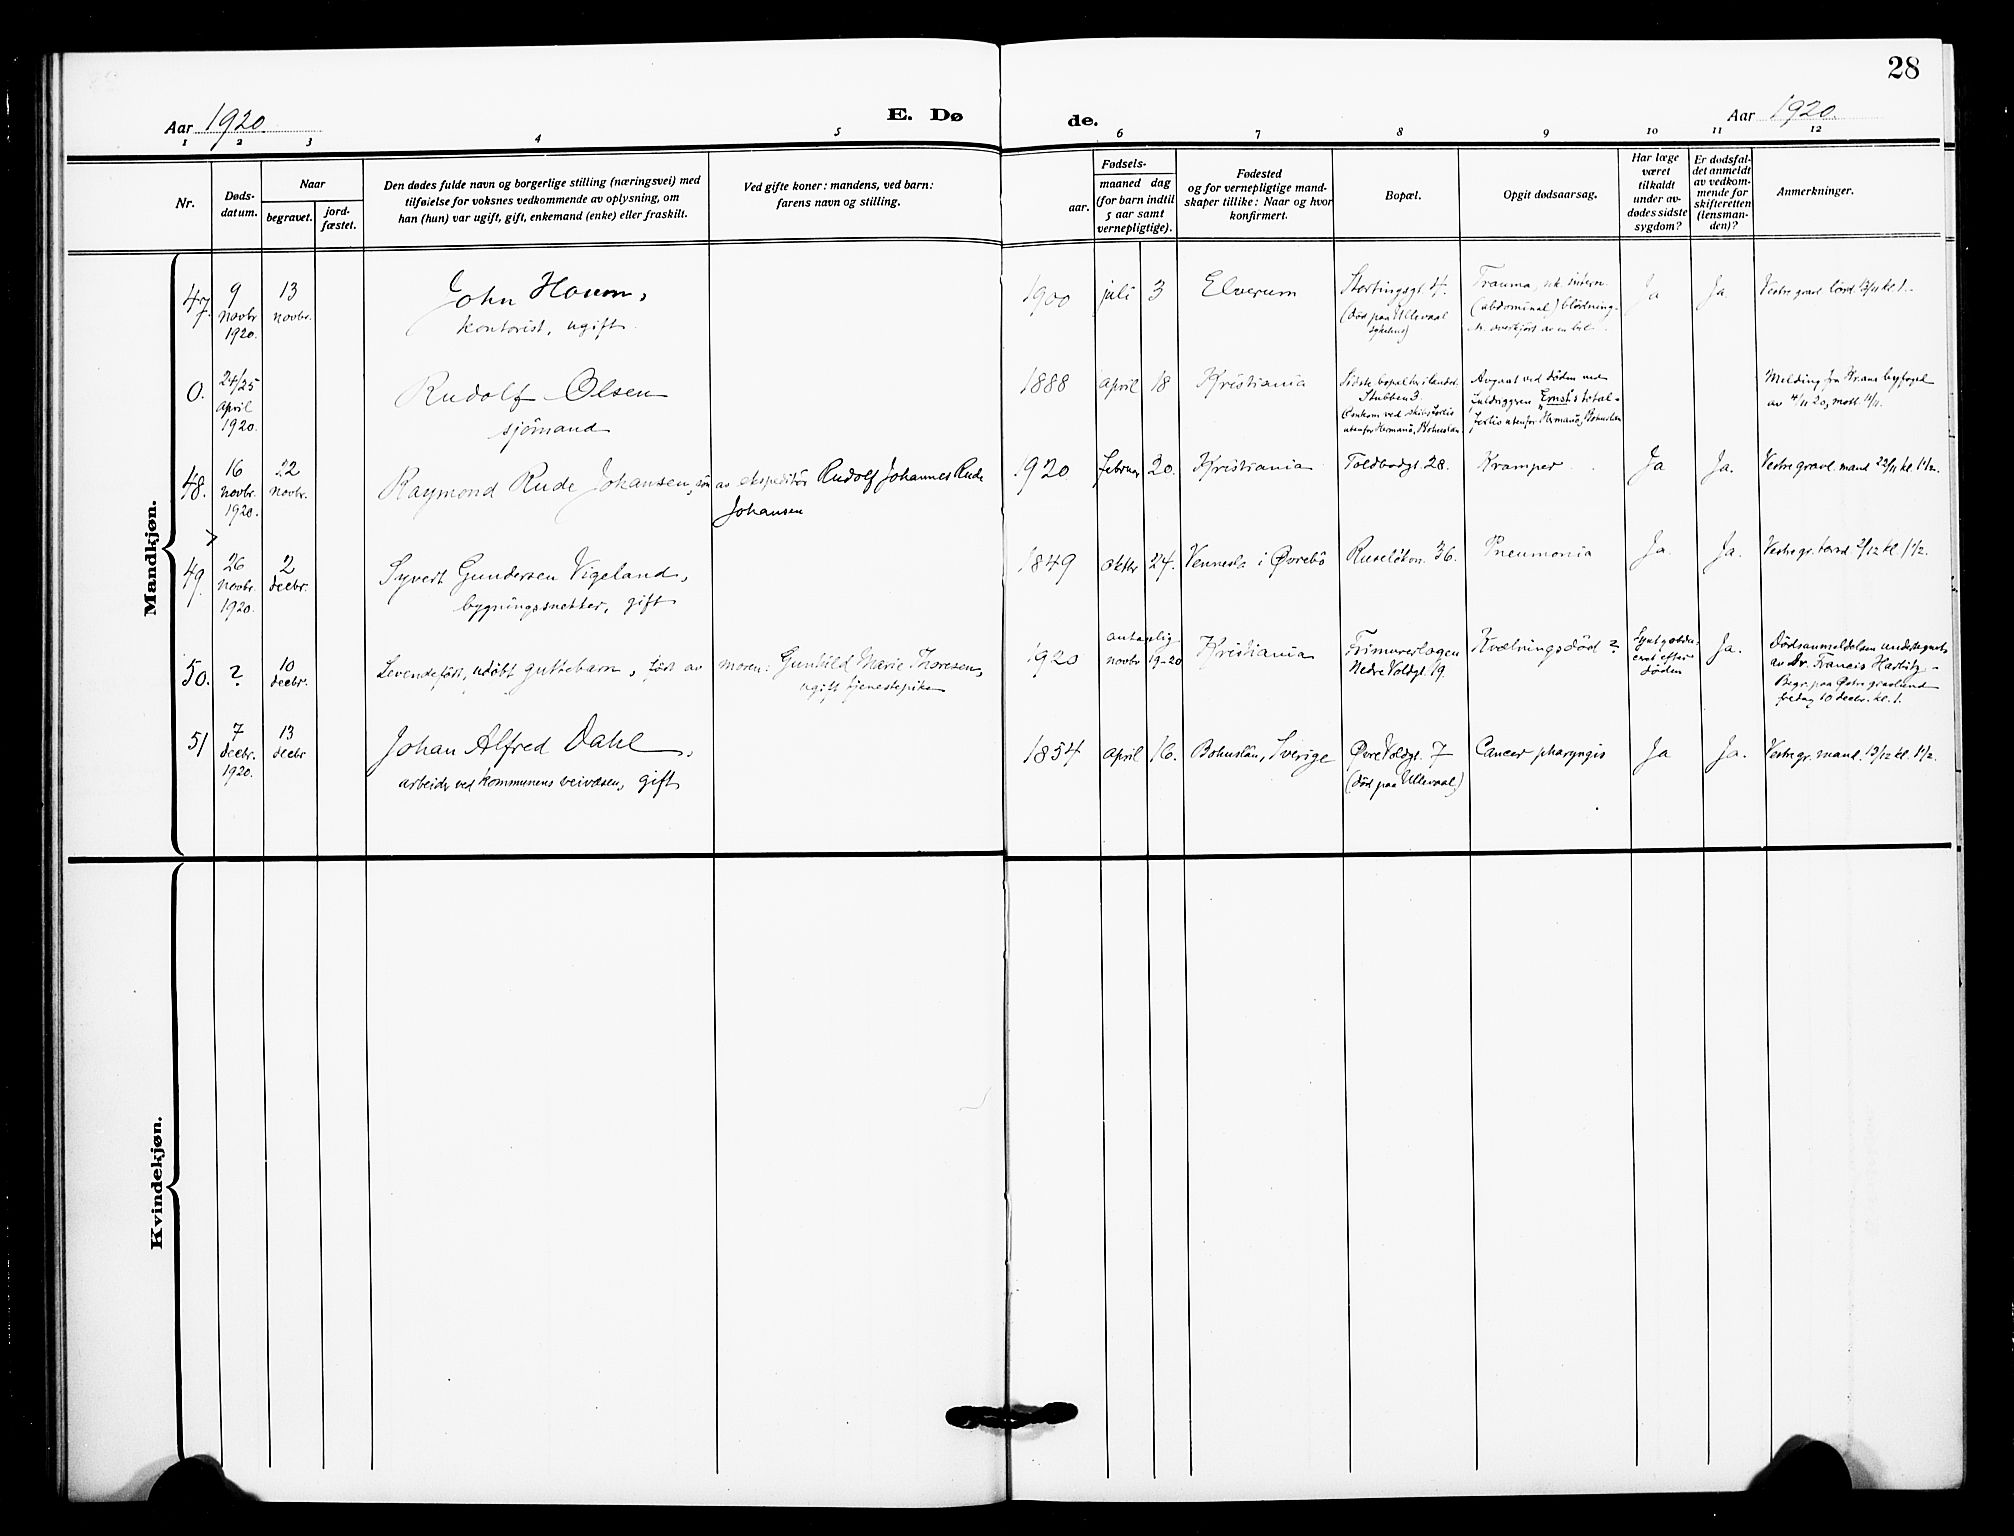 28
Aar 1920
E. Dø
de.
Aar 1920.
1 2 3 4 5 6 7 8 9 10 11 12
Nr.
Døds-
datum.
Naar
begravet.
jord-
fæstet.
Den dødes fulde navn og borgerlige stilling (næringsvei) med
tilføielse for voksnes vedkommende av oplysning, om
han (hun) var ugift, gift, enkemand (enke) eller fraskilt.
Ved gifte koner: mandens, ved barn:
farens navn og stilling.
Fødsels-
aar.
maaned dag
(for barn indtil
5 aar samt
vernepligtige).
Fødested
og for vernepligtige mand-
skaper tillike: Naar og hvor
konfirmert.
Bopæl.
Opgit dødsaarsag.
Har læge
været
tilkaldt
under av-
dødes sidste
sygdom?
Er dødsfal-
det anmeldt
av vedkom-
mende for
skifteretten
(lensman-
den)?
Anmerkninger.
Mandkjøn.
47.
9
novbr
1920.
13
novbr.
John Houm,
kontorist, ugift.
1900
juli
3
Elverum
Stortingsgt. 4.
(død paa Ullevaal
sykehus)
Trauma, intern
(abdominal) blødning
overkjørt av en bil.
Ja
Ja.
Vestre gravl. lørd. 13/11 kl. 1.
0.
24/25
april
1920.
Rudolf Olsen
sjømand
1888
april
18
Kristiania
Sidste bopæl her i landet
Stubben 3.
Omkom ved skibsforlis
utenfor Hermanö, Bohuslän.
Avgaat ved døden ved
Ernst's total-
forlis utenfor Hermanö, Bohuslän
Melding fra Kr.ania byfoged
av 4/11 20, mott.
48.
16
novbr.
1920.
22
novbr.
Raymond Rude Johansen, søn
av ekspeditør Rudolf Johannes Rude
Johansen
1920
februar
20.
Kristiania
Toldbodgt. 28.
Kramper
Ja
Ja.
Vestre gravl. mand. 22/11 kl. 1 1/2.
49.
26
novbr.
1920.
2
decbr.
Syvert Gundersen Vigeland,
bygningssnekker, gift
1849
oktbr
24.
Vennesla i Øvrebö
Ruseløkvn. 36.
Pneumonia
Ja.
Ja.
Vestre gr. torsd. 2/12 kl. 1 1/2.
50.
?
10
decbr.
Levendefødt, udøbt guttebarn, født av
moren: Gunhild Marie Thoresen,
ugift tjenestepike
1920
antagelig
novbr 19-20
Kristiania
Frimurerlogen
Nedre Voldgt. 19.
Kvælningsdød?
Synt
efter
døden
Ja.
Dødsanmeldelsen undertegnet
av Dr. Francis Harbitz.
Begr. paa Østre gravlund
fredag 10 decbr. kl. 1.
51
7
decbr.
1920.
13
decbr
Johan Alfred Dahl,
arbeider ved kommunens veivæsen, gift
1854
april
16.
Bohuslän, Sverige
Øvre Voldgt. 7
(død paa Ullevaal)
Cancer pharyngis
Ja
Ja.
Vestre gr. mand. 13/12 kl. 1 1/2.
Kvindekjøn.